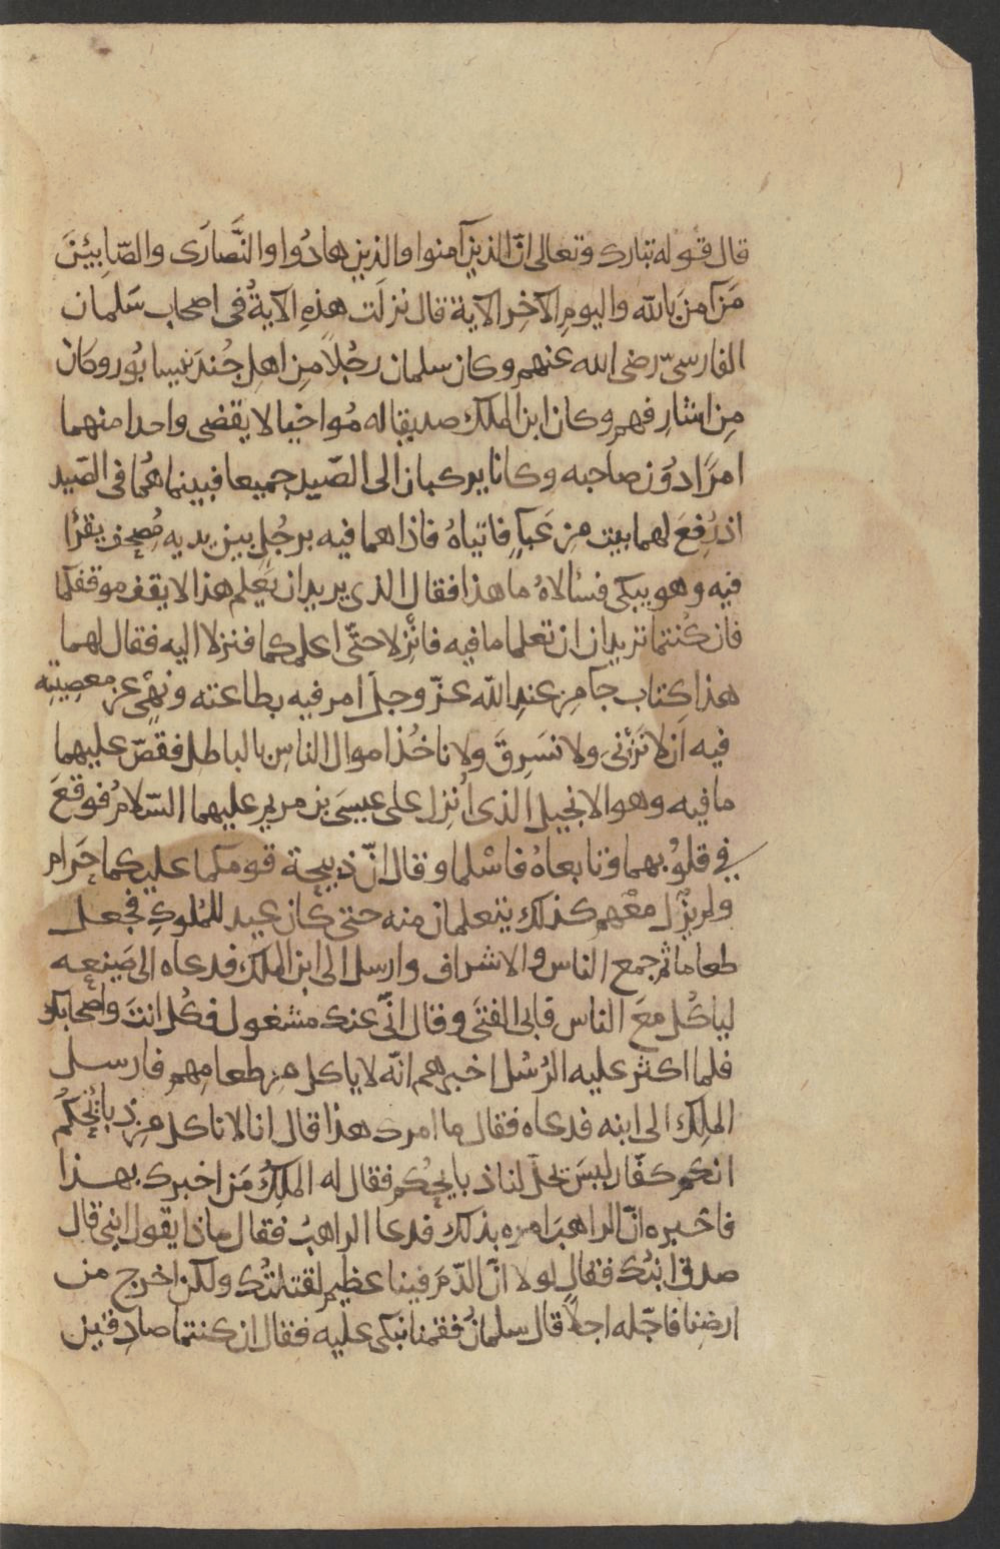 قال قوله تبارك وتعالى انّ الذين آمنوا والذين هادُوا والنَّصارَى والصّابِئينَ
مَن آمنَ بالله واليومِ الآخِر الآية قال نزلَت هذِهِ الآيةُ فى اصحاب سَلمان
الفارسىّ رضى الله عنهم وكان سلمان رجُلاً مِن اهلِ جُندَ نيسابُور وكان
مِن اشرافهم وكان ابن الملك صديقا له مُواخيا لا يقضى واحدا منهما
امرًا دُون صاحبه وكانا يركبان الى الصّيد جميعا فبينما هُما فى الصّيد
اذ رُفِعَ لهما بيت مِن عَبآءٍ فاتياهُ فاذا هما فيه برجُلٍ بين يديه مُصحف يقرأ
فيه وهو يبكى فسألاهُ ما هذا فقال الذى يريد ان يَعلم هذا لا يقف موقفكما
فان كُنتما تريدان ان تعلما ما فيه فانْزِلا حتّى اعلمكما فنزلا اليه فقال لهما
هذا كتاب جآ مِن عندِ الله عزّ وجلّ امر فيه بطاعته ونَهْى عن معصيته
فيه ان لا نَزْنى ولا نسَرِقَ ولا ناخُذ اموال الناسِ بالباطل فقصّ عليهما
ما فيه وهو الانجيل الذى اُنزِل على عيسَى بن مريم عليهما السّلامُ فوقعَ
فى قلُوْبهما وتابعاهُ فاسْلما وقال انّ ذبيحة قومكما عليكما حَرام
ولم يزْل معْهم كذلك يتعلمان منه حتى كان عيد للمُلوكِ فجعل
طعاما ثم جمع الناس والاشراف وارسل الى ابن الملك فدعاه الى صَنِيعه
لياكُل معَ الناس فابى الفتَى وقال انّى عنك مشغول فكُل انتَ واصحابك
فلما اكثر عليه الرُسُل اخبرهم انّه لا ياكل مِن طعامِهم فارسل
الملِك الى ابنه فدعاه فقال ما امرك هذا قال انا لا ناكل مِن ذبائحكُم
انكم كفّار ليسَ تحلّ لنا ذبايحُكم فقال له الملِكُ مَن اخبرك بهذا
فاخبره انّ الراهبَ امره بذلك فدعا الراهبُ فقال ماذا يقول ابنى قال
صدق ابنُك فقال لولا انّ الدّمَ فينا عظيم لقتلتُك ولكن اخرج من
ارضِنا فاجّله اجلاً قال سلمانُ فقمنا نبكى عليه فقال ان كنتما صادقين